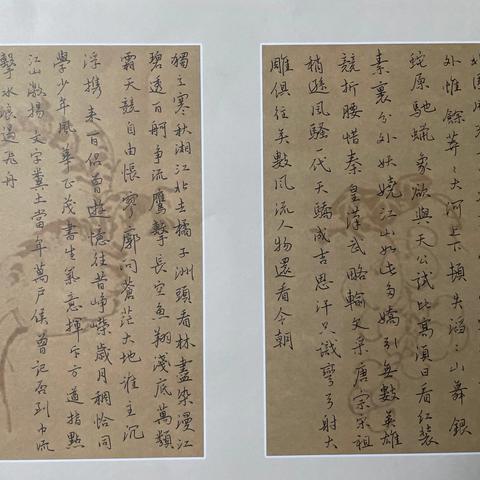 外惟餘莽〻大河上下頓失滔〻山舞銀
蛇原馳蠟象欲與天公試比高須日看紅裝
素裹分外妖嬈江山如此多嬌引無數英雄
競折腰惜秦皇漢武略輸文采唐宗宋祖
稍遜風騷一代天驕成吉思汗只識彎弓射大
雕俱往矣數風流人物還看今朝
獨立寒秋湘江北去橘子洲頭看林盡染漫江
碧透百舸爭流鷹擊長空魚翔淺底萬類
霜天競自由悵寥廓問蒼茫大地誰主沉
浮携來百侶曾遊憶往昔崢嶸歲月稠恰同
學少年風華正茂書生氣意揮斥方遒指點
江山激揚文字糞土當年萬户侯曾記否到中流
擊水浪遏飛舟